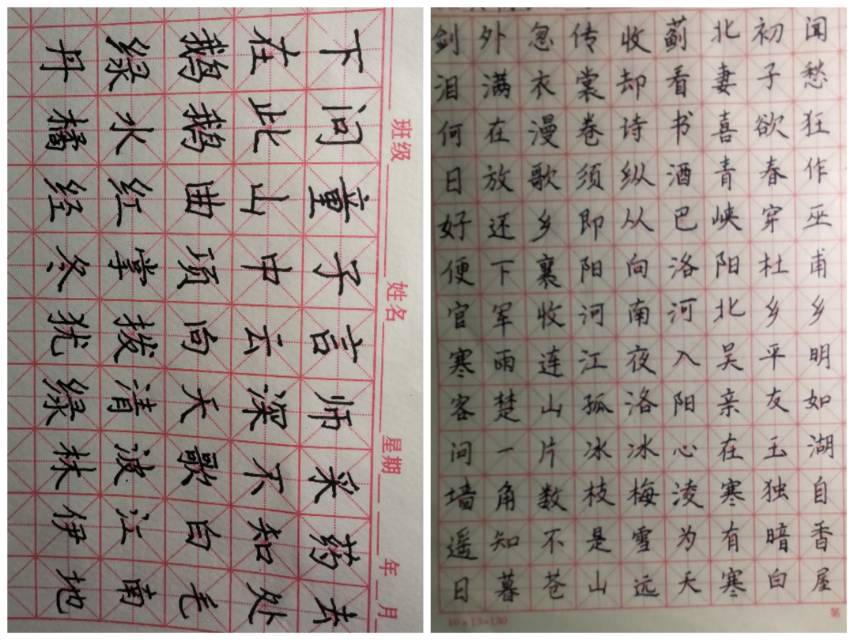 班级 姓名 星期 年 月
下问童子言师采药去
在此山中云深不知处
鹅鹅曲项向天歌白毛
绿水红掌拨清波江南
丹橘经冬犹绿林伊地
剑外忽传收蓟北初闻
泪满衣裳却看妻子愁
何在漫卷诗书喜欲狂
日放歌须纵酒青春作
好还乡即从巴峡穿巫
便下襄阳向洛阳杜甫
官军收河南河北乡乡
寒雨连江夜入吴平明
客楚山孤洛阳亲友如
问一片冰冰心在玉湖
墙角数枝梅凌寒独自
遥知不是雪为有暗香
日暮苍山远天寒白屋
10×13=130 第